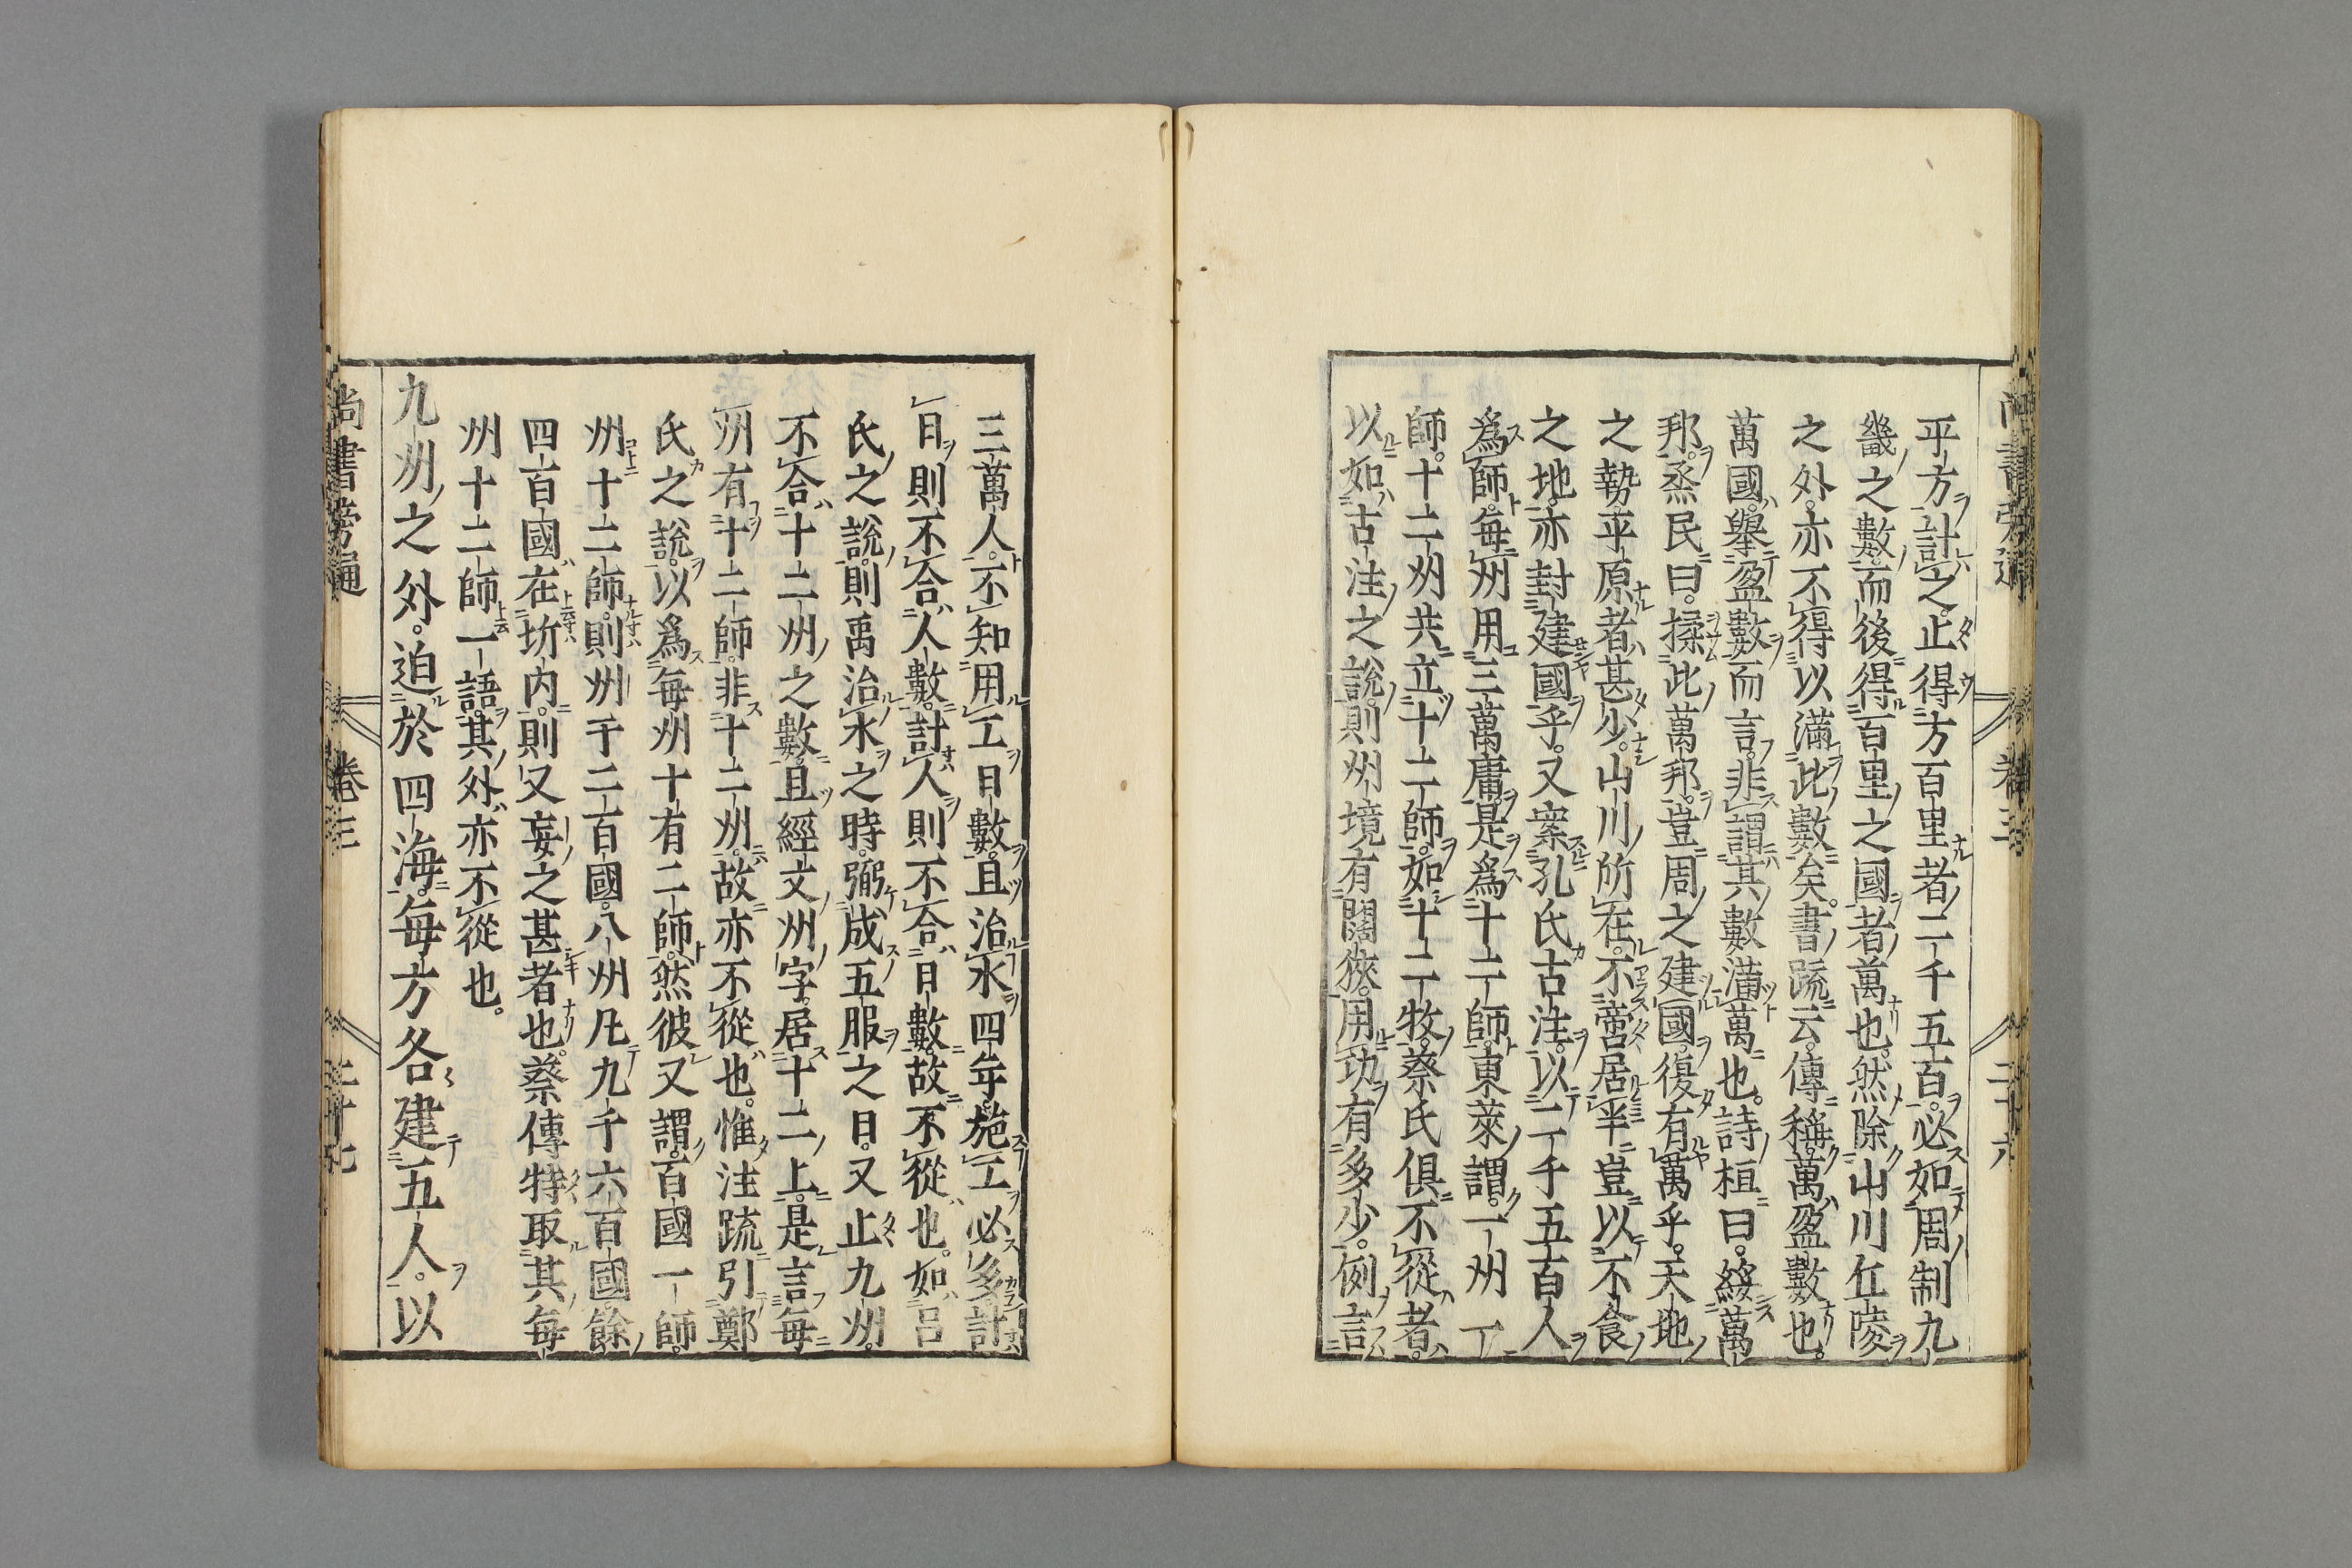 平方計之止得方百里者二千五百必如周制九
畿之數而後得百里之國者萬也。然除山川丘陵
之外亦不得以滿此數矣。書疏云。傳稱萬盈數也。
萬國舉盈數而言。非謂其數滿萬也。詩桓曰。綏萬
邦。烝民曰。揉此萬邦。豈周之建國復有萬乎。天地
之勢平原者甚少。山川所在。不啻居半豈以不食
之地亦封建國乎。又案孔氏古注以二千五百人
爲師。每州用三萬庸。是爲十二師。東萊謂。一州一
師。十二州共立十二師。如十二牧。蔡氏俱不從者。
以如古注之說則州境有闊狹。用功有多少。例言
三萬人。不知用工日數。且治水四年。施工必多計
日則不合人數。計人則不合日數。故不從也。如呂
氏之說。則禹治水之時。弼成五服之日。又止九州。
不合十二州之數。且經文州字。居十二上。是言每
州有十二師。非十二州。故亦不從也。惟注疏引鄭
氏之說。以爲每州十有二師。然彼又謂。百國一師。
州十二師。則州千二百國。八州凡九千六百國。餘
四百國在圻內。則又妄之甚者也。蔡傳特取其每
州十二師一語。其外亦不從也。
九州之外。迫於四海。每方各建五人。以
尚書旁通 卷三